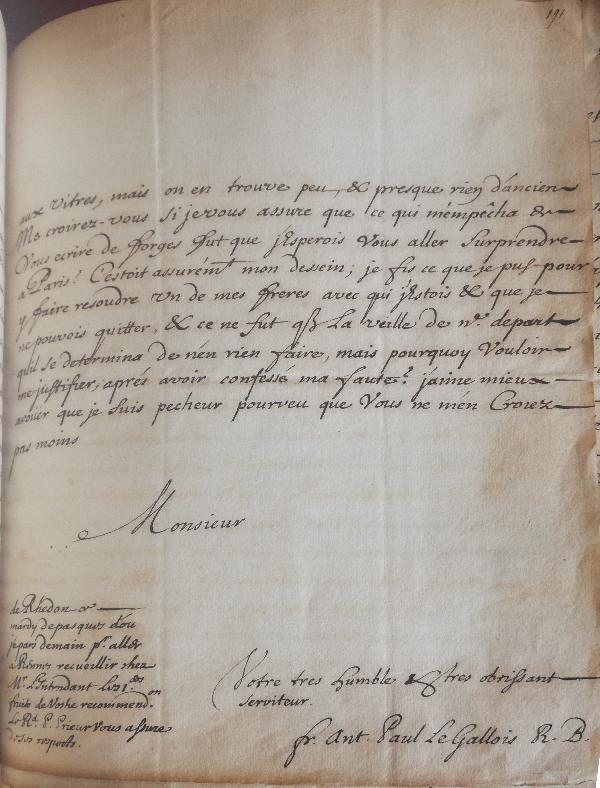 191
aux vitres, mais on en trouve peu, & presque rien d'ancien
Me croirez-vous si je vous assure que ce qui m'empêcha de
Vous ecrire de fforges ffut que j'Esperois Vous aller Surprendre
a Paris? C'estoit assurém.t mon dessein; je fis ce que je pus pour
y faire resoudre un de mes ffreres avec qui j'Estois & que je
ne pouvois quitter, & ce ne fut q; La veille de n.re depart
qu'il se determina de n'en rien faire, mais pourquoy Vouloir
me justifier, aprés avoir confessé ma faute? j'aime mieux
avoüer que je suis pecheur pourveu que Vous ne m'en Croiez
pas moins
Monsieur
de Rhedon ce
mardy de pasques d'ou
je pars demain p.r aller
a Rennes recueillir chez
M.r L'Intendant Les 1.ers
fruits de Vostre recommend.on
Le R.d P. Prieur Vous assure
de ses respects.
Votre tres humble & tres obeissant
serviteur.
fr. Ant. Paul Le Gallois R. B.